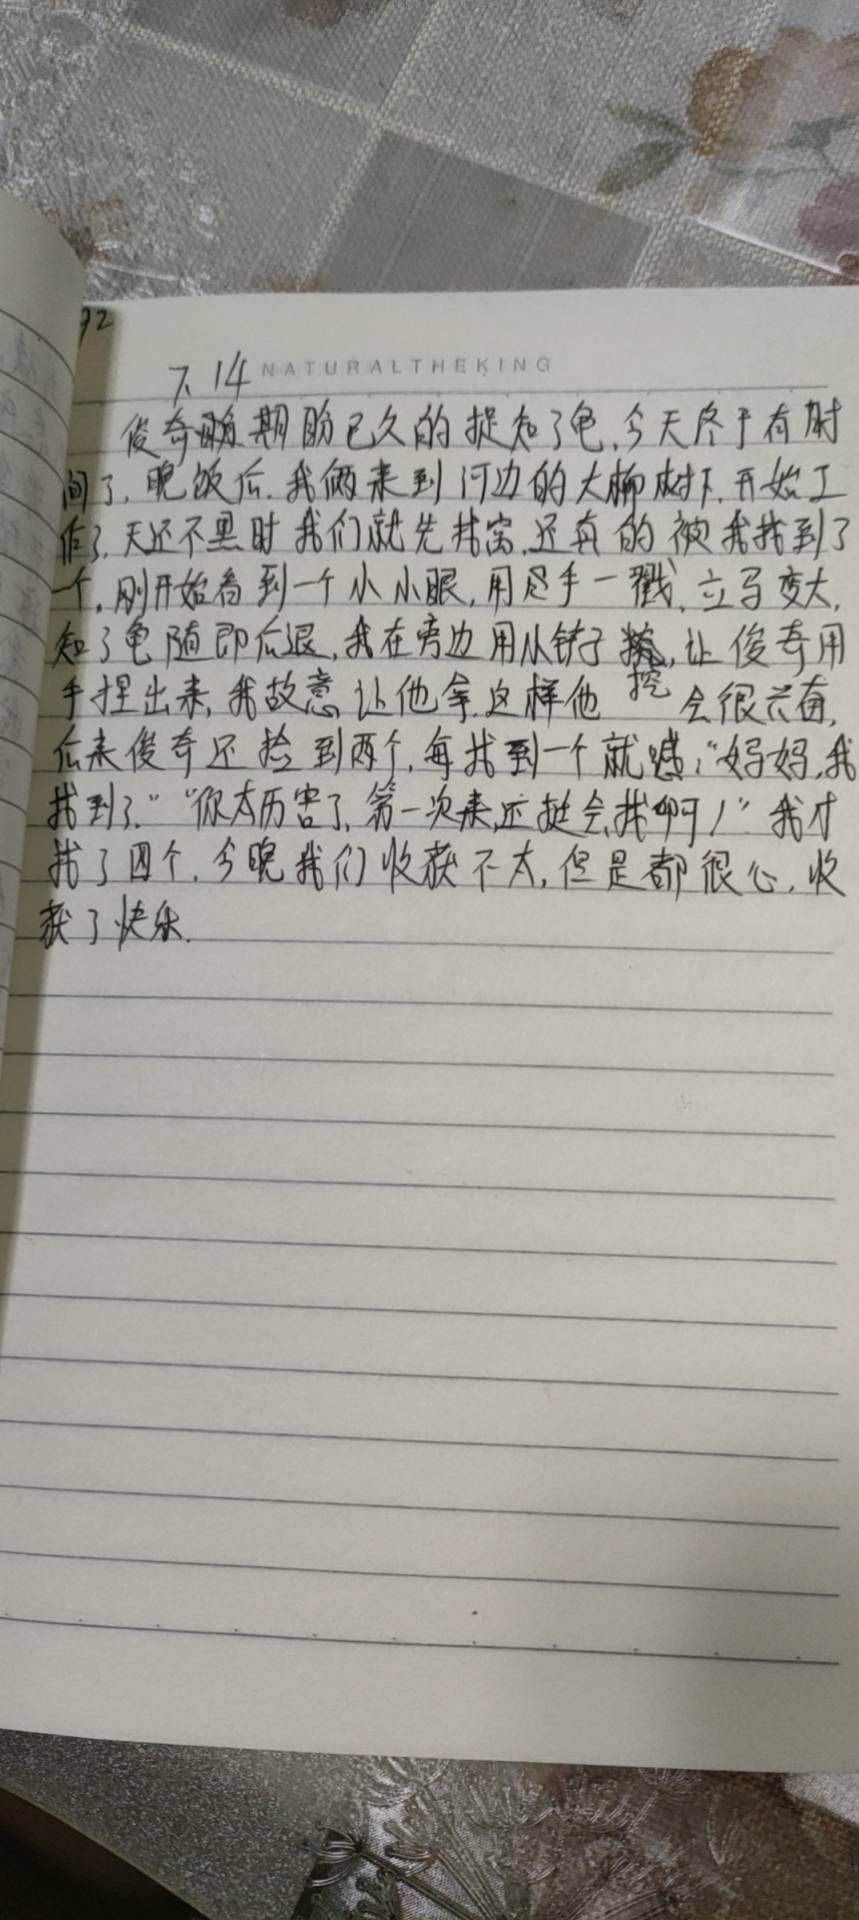 92
7、14 NATURALTHEKING
俊奇期盼已久的捉知了龟,今天终于有时
间了,晚饭后,我俩来到河边的大柳树下,开始工
作了,天还不黑时我们就先找窝,还真的被我找到了
一个,刚开始看到一个小小眼,用手一戳,立马变大,
知了龟随即后退,我在旁边用小铲子挖,让俊奇用
手捏出来,我故意让他拿,这样他会很兴奋,
后来俊奇还捡到两个,每找到一个就喊:“妈妈,我
找到了。”“你太厉害了,第一次来还挺会找啊!”我才
找了四个,今晚我们收获不大,但是都很心,收
获了快乐.